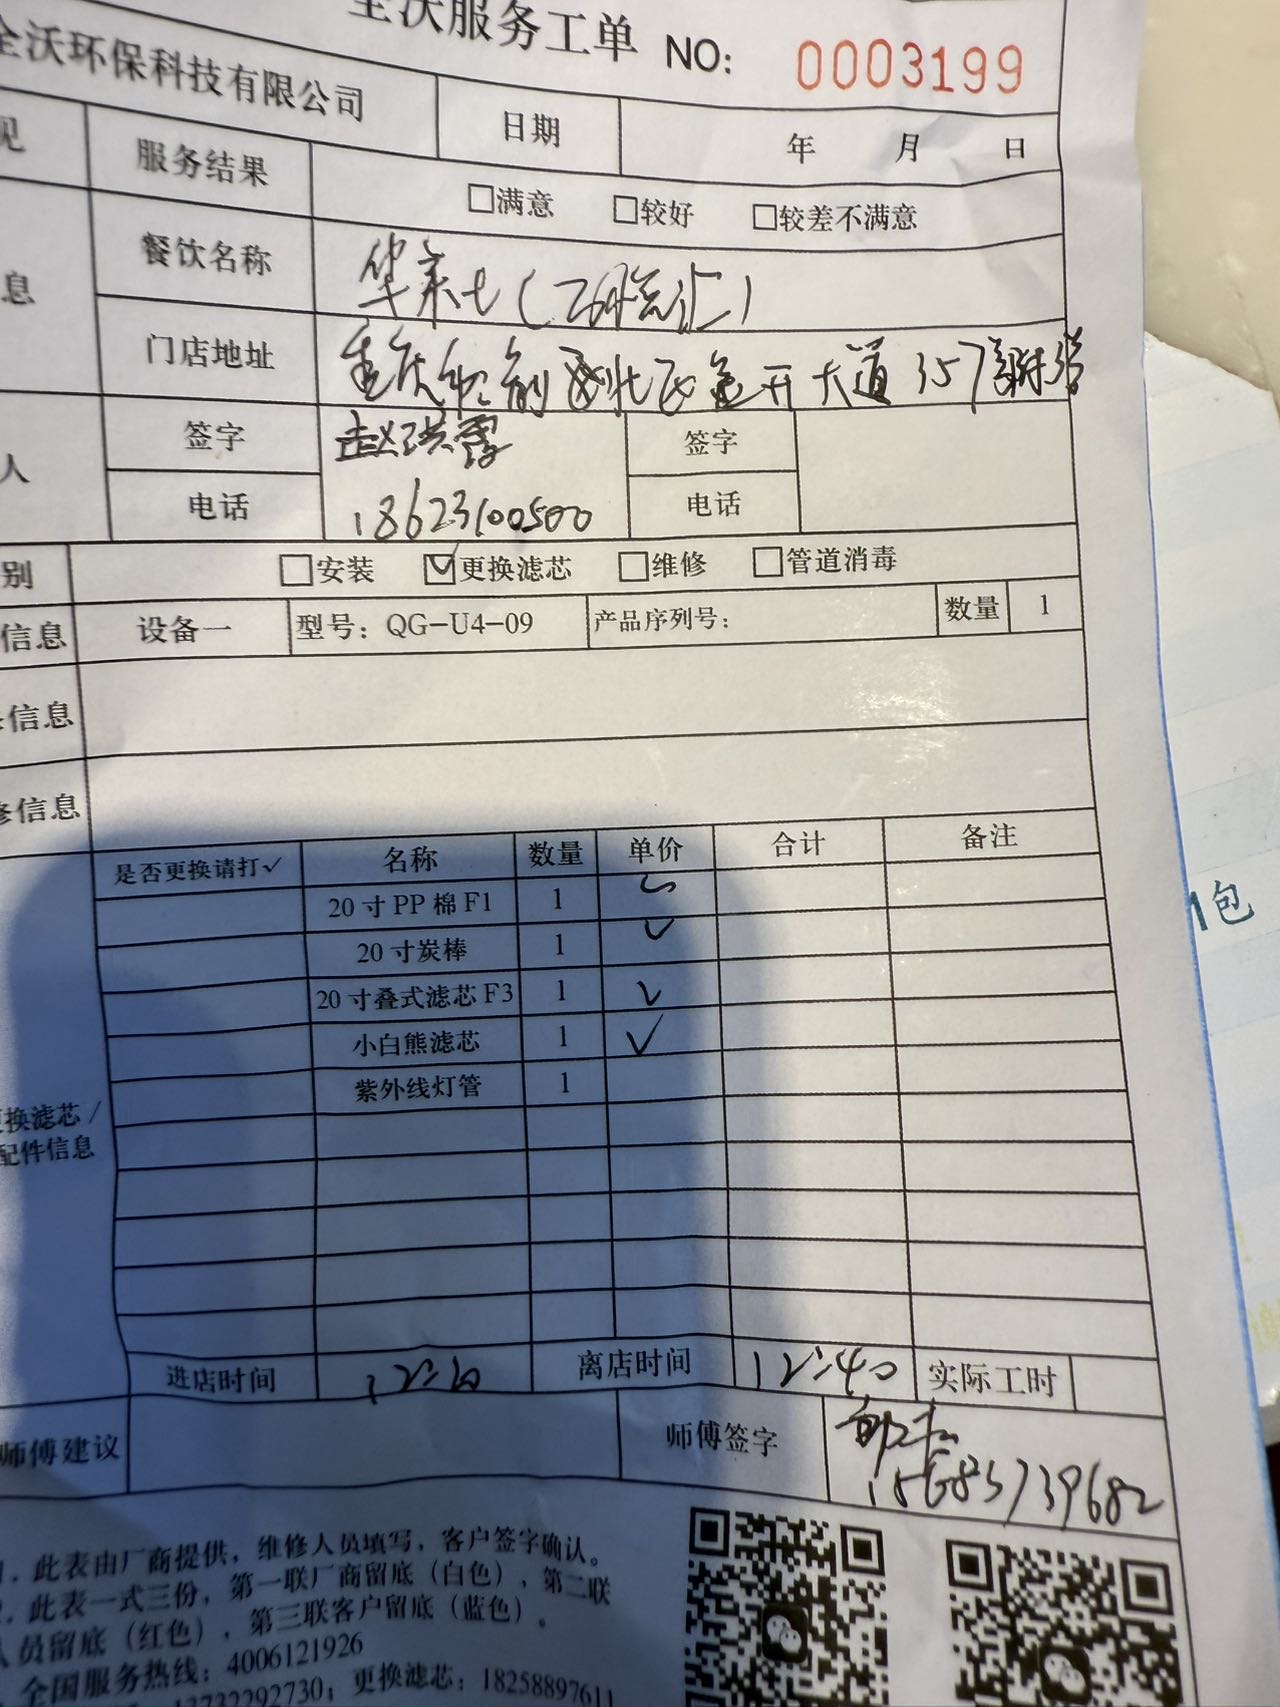 全沃服务工单 NO: 0003199
全沃环保科技有限公司 日期 年 月 日
见 服务结果 □满意 □较好 □较差不满意
息 餐饮名称 华莱士(
门店地址 重庆市 北区金开大道357号附
人 签字 赵洪霞 签字
电话 18623100500 电话
别 □安装 ☑更换滤芯 □维修 □管道消毒
信息 设备一 型号：QG-U4-09 产品序列号： 数量 1
信息
修信息
是否更换请打✓ 名称 数量 单价 合计 备注
20寸PP棉F1 1 ✓
20寸炭棒 1 ✓
20寸叠式滤芯F3 1 ✓
小白熊滤芯 1 ✓
紫外线灯管 1
更换滤芯/
配件信息
进店时间 离店时间 12:40 实际工时
师傅建议 师傅签字
15683739682
1. 此表由厂商提供，维修人员填写，客户签字确认。
2. 此表一式三份，第一联厂商留底（白色），第二联
人员留底（红色），第三联客户留底（蓝色）。
全国服务热线：4006121926
13732292730；更换滤芯：18258897611
1包